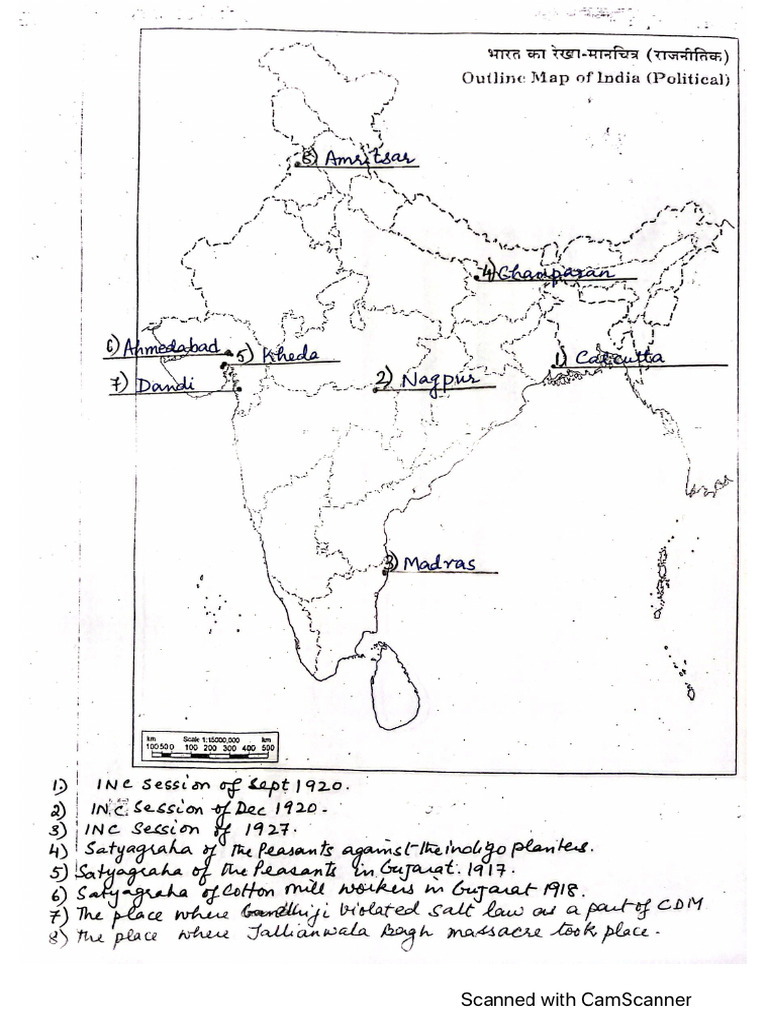 भारत का रेखा-मानचित्र (राजनीतिक)
Outline Map of India (Political)
8) Amritsar
4) Champaran
6) Ahmedabad
5) Kheda
1) Calcutta
7) Dandi
2) Nagpur
3) Madras
km Scale 1:15000,000 km
100 50 0 100 200 300 400 500
1.) INC Session of Sept 1920.
2) INC Session of Dec 1920.
3) INC Session of 1927.
4) Satyagraha of the Peasants against the indigo planters.
5) Satyagraha of the Peasants in Gujarat. 1917.
6) Satyagraha of Cotton mill workers in Gujarat 1918.
7) The place where Gandhiji violated Salt law as a part of CDM
8) The place where Jallianwala Bagh massacre took place.
Scanned with CamScanner